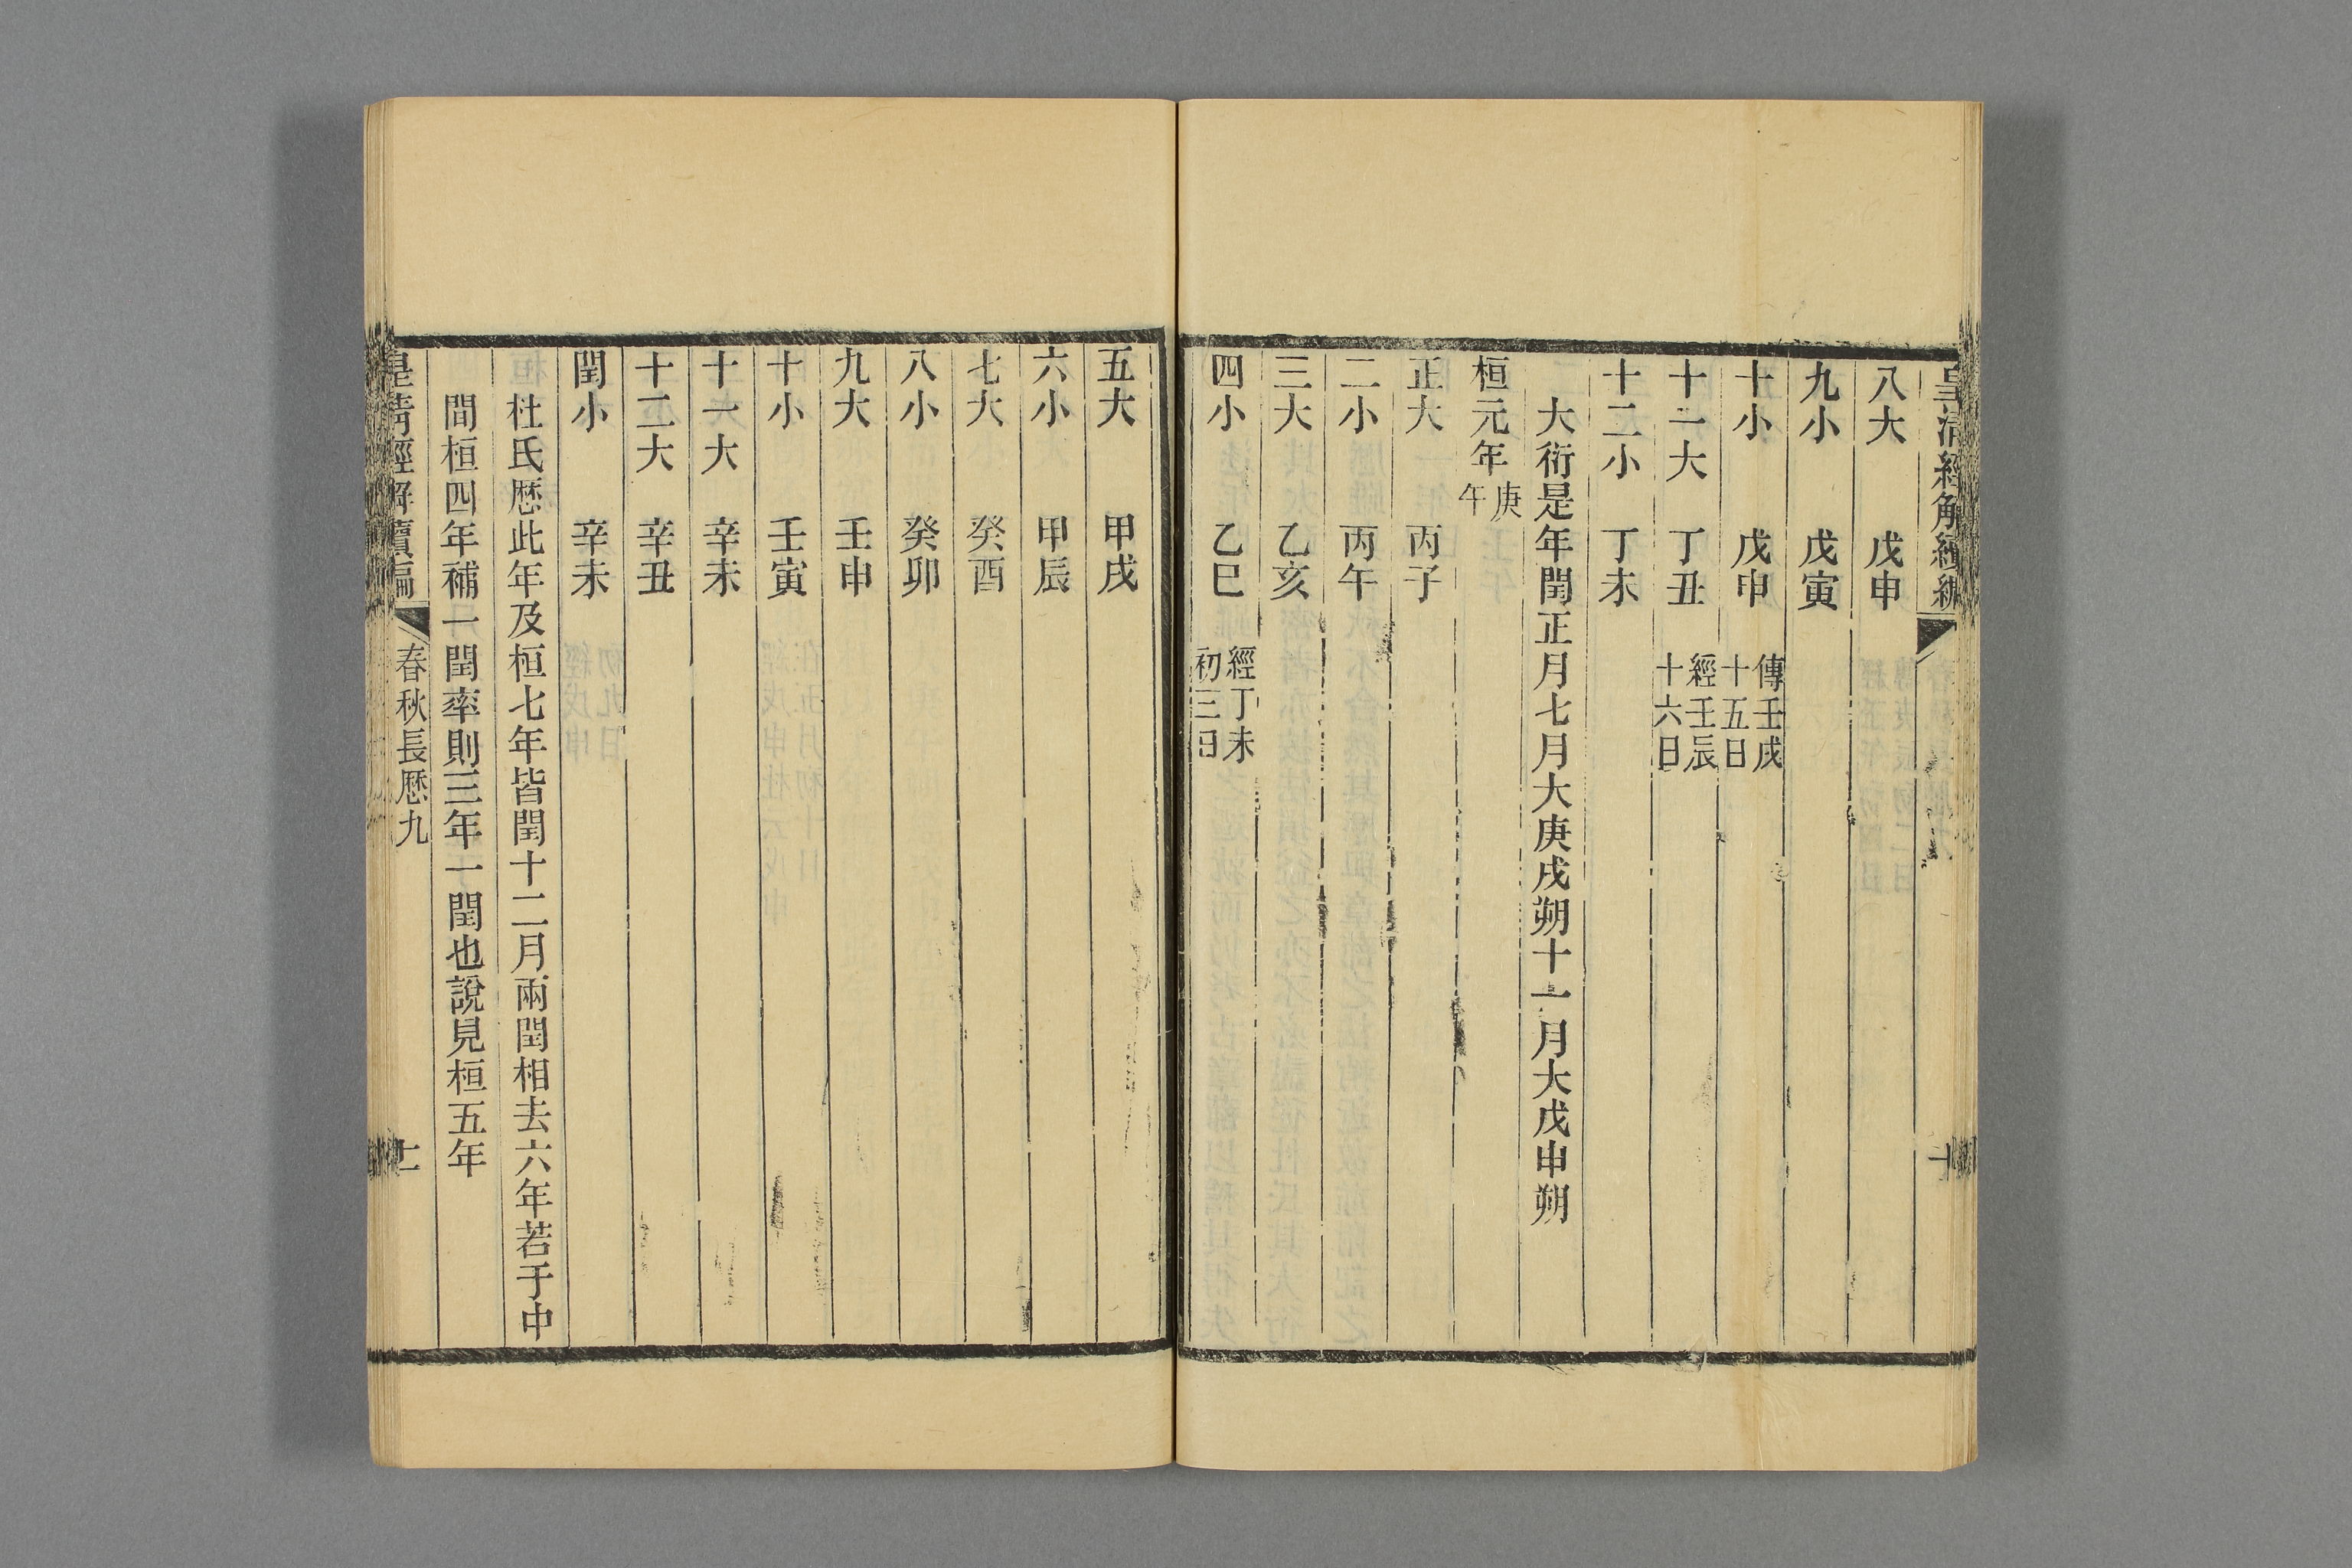 皇清經解續編
八大 戊申
九小 戊寅
十小 戊申 傳壬戌十五日
十一大 丁丑 經壬辰十六日
十二小 丁未
大衍是年閏正月七月大庚戌朔十一月大戊申朔
桓元年庚午
正大 丙子
二小 丙午
三大 乙亥
四小 乙巳 經丁未初三日
五大 甲戌
六小 甲辰
七大 癸酉
八小 癸卯
九大 壬申
十小 壬寅
十一大 辛未
十二大 辛丑
閏小 辛未
杜氏厯此年及桓七年皆閏十二月兩閏相去六年若于中
間桓四年補一閏率則三年一閏也說見桓五年
皇清經解續編 春秋長厯九